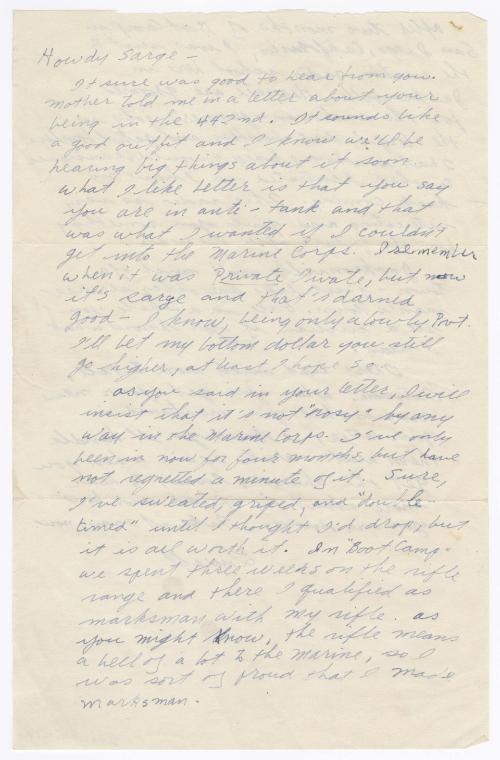 Howdy Sarge -
It sure was good to hear from you.
Mother told me in a letter about your
being in the 442nd. It sounds like
a good outfit and I know we'll be
hearing big things about it soon
what I like better is that you say
you are in anti-tank and that
was what I wanted if I couldn't
get into the Marine Corps. I remember
when it was Private Iwate, but now
it's sarge and that's darned
good - I know, being only a lowly Pvt.
I'll bet my bottom dollar you still
go higher, at least I hope so.
as you said in your letter, I will
insist that it's not "rosy" by any
way in the Marine Corps. I've only
been in now for four months, but have
not regretted a minute of it. Sure,
I've sweated, griped, and "double-
timed" until I thought I'd drop, but
it is all worth it. In "Boot Camp"
we spent three weeks on the rifle
range and there I qualified as
marksman with my rifle. as
you might know, the rifle means
a hell of a lot to the marine, so I
was sort of proud that I made
marksman.